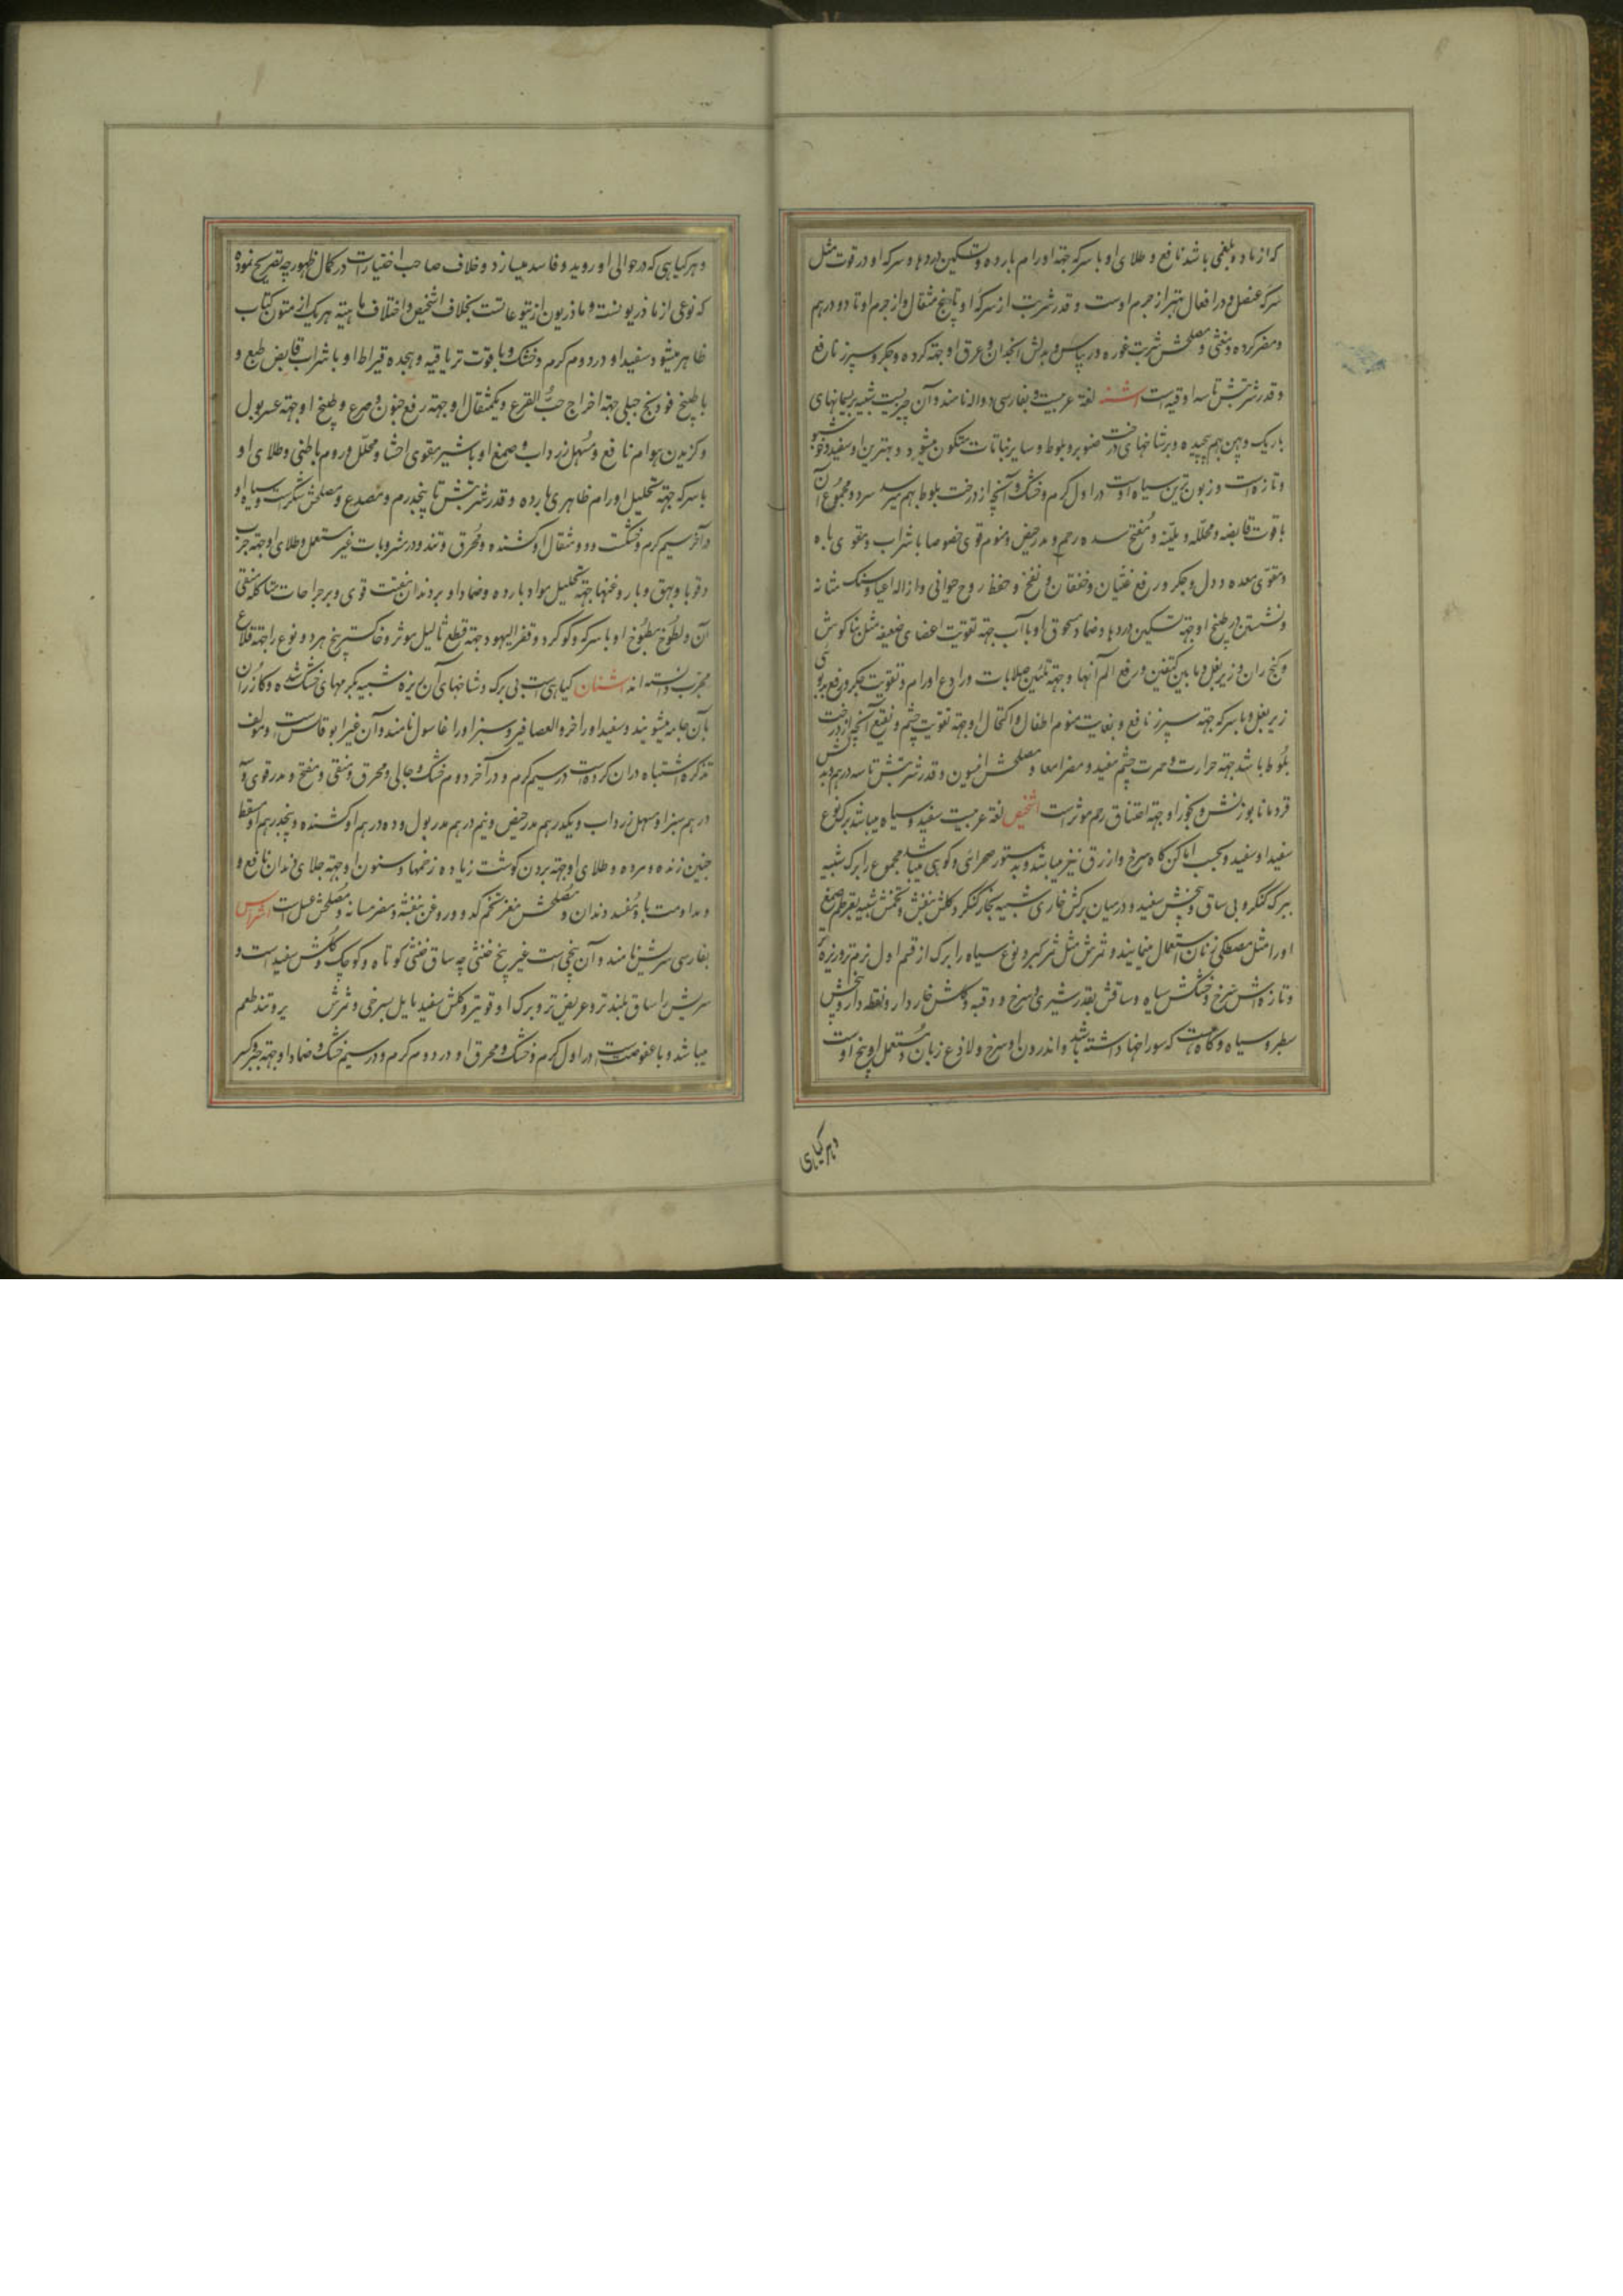 که از ماده بلغمی باشد نافع و طلای او با سرکه جهة اورام بارده و تسکین دردها و سرکه او در قوت مثل
سرکه عنصل و در افعال بهتر از جرم اوست و قدر شربت از سرکه او تا پنج مثقال و از جرم او تا دو درهم
و مضر کرده و مغثی و مصلحش شربت غوره و ریباس و بدلش انجدان و عرق او جهة کرده و جکر و سپرز نافع
و قدر شربتش تا سه اوقیه است اشنه لغة عربیت و بفارسی دواله نامند و آن چیزیست شبیه بریسمانهای
باریک و بهن بهم پیچیده و بر شاخهای درخت صنوبر و بلوط و سایر نباتات متکون میشود و بهترین او سفید و خوشبو
و تازه است و زبون ترین سیاه اوست در اول کرم و خشک و آنچه از درخت بلوط بهم میرسد سرد و مجموع آن
با قوت قابضه و محلله و ملینه و مفتح سده رحم و مدر حیض و منوم قوی خصوصا با شراب و مقوی باه
و مقوی معده و دل و جکر و رفع غثیان و خفقان و نفخ و حفظ روح حیوانی و ازاله اعیا و سنک مثانه
و نشستن در طبیخ او جهة تسکین دردها و ضماد مسحوق او با آب جهة تقویت اعضای ضعیفه مثل بناکوش
و کنج ران و زیر بغل و ما بین کتفین و رفع الم آنها و جهة تلیین صلابات و رادع اورام و تقویت جکر و رفع بدبوئی
زیر بغل و با سرکه جهة سپرز نافع و بغایت منوم اطفال و اکتحال او جهة تقویت چشم و نقیع آنچه از درخت
بلوط باشد جهة حرارت و حمرت چشم مفید و مضر امعا و مصلحش انیسون و قدر شربتش تا سه درهم و بدلش
قردمانا بوزنش و بخور او جهة اختناق رحم موثر است اشخیص لغة عربیت سفید و سیاه میباشد برک نوع
سفید او سفید و بحسب اماکن کاه سرخ و ازرق نیز میباشد و بدستور صحرائی و کوهی میباشد مجموع را برک شبیه
ببرک کنکر و بی ساق و بیخش سفید و در میان برکش خاری شبیه بخار کنکر و کلش بنفش و تخمش شبیه بقرطم و صمغ
او را مثل مصطکی زنان استعمال مینمایند و ثمرش مثل ثمر کبر و نوع سیاه را برک از قسم اول نرم تر و ریزه تر
و تازه اش سرخ و خشکش سیاه و ساقش بقدر شبری و سرخ و قبه و کلش خاردار و نقطه دار و بیخش
سطبر و سیاه و کاه است که سوراخها داشته باشد و اندرون او سرخ و لاذع زبان و مستعمل او بیخ اوست
و هر کیاهی
و هر کیاهی که در حوالی او روید و فاسد میسازد و خلاف صاحب اختیارات در کمال ظهور چه تصریح نموده
که نوعی از ماذریونست و ماذریون از یتوعاتست بخلاف اشخیص و اختلاف ماهیة هر یک از متون کتاب
ظاهر میشود و سفید او در دوم کرم و خشک و با قوت تریاقیه و هجده قیراط او با شراب قابض طبع و
با طبیخ فودنج جبلی جهة اخراج حب القرع و یکمثقال او جهة رفع جنون و صرع و طبیخ او جهة عسر بول
و کزیدن هوام نافع و مسهل زرداب و صمغ او با شیر مقوی احشا و محلل ورم باطنی و طلای او
با سرکه جهة تحلیل اورام ظاهری بارده و قدر شربتش تا پنجدرم و مصدع و مصلحش شکرست و سیاه او
در آخر سیم کرم و خشکست و دو مثقال او کشنده و محرق و تند و در مشروبات غیر مستعمل و طلای او جهة جرب
و قوبا و بهق و با روغنها جهة تحلیل مواد بارده و ضماد او بر دندان مفتت قوی و بر جراحات متاکله منقی
آن و لطوخ مطبوخ او با سرکه و کوکرد و قفر الیهود جهة قطع ثالیل موثر و خاکستر بیخ هر دو نوع را جهة قلاع
مجرب دانسته اند اشنان کیاهی است بی برک و شاخهای آن ریزه شبیه بکرمهای خشک شده و کازران
بآن جامه میشویند و سفید او را خرو العصافیر و سبز او را غاسول نامند و آن غیر ابوقانس است و مولف
تذکره اشتباه در آن کرده است در سیم کرم و در آخر دوم خشک و جالی و محرق و منقی و مفتح و مدر قوی و
درهم سبز او مسهل زرداب و یکدرهم مدر حیض و نیم درهم مدر بول و ده درهم او کشنده و پنجدرهم او مسقط
جنین زنده و مرده و طلای او جهة بردن کوشت زیاده زخمها و سنون او جهة جلای دندان نافع و
و مداومت باو مفسد دندان و مصلحش مغز تخم کدو و روغن بنفشه و مضر مثانه و مصلحش عسل است اشراس
بفارسی سریش نامند و آن بیخی است غیر بیخ خنثی چه ساق خنثی کوتاه و کوچک و کلش سفید است و
سریش را ساق بلندتر و عریض تر و برک او قویتر و کلش سفید مایل بسرخی و ثمرش و تند طعم
میباشد و با عفوصت در اول کرم و خشک و محرق او در دوم کرم و در سیم خشک و ضماد او جهة جبر کسر